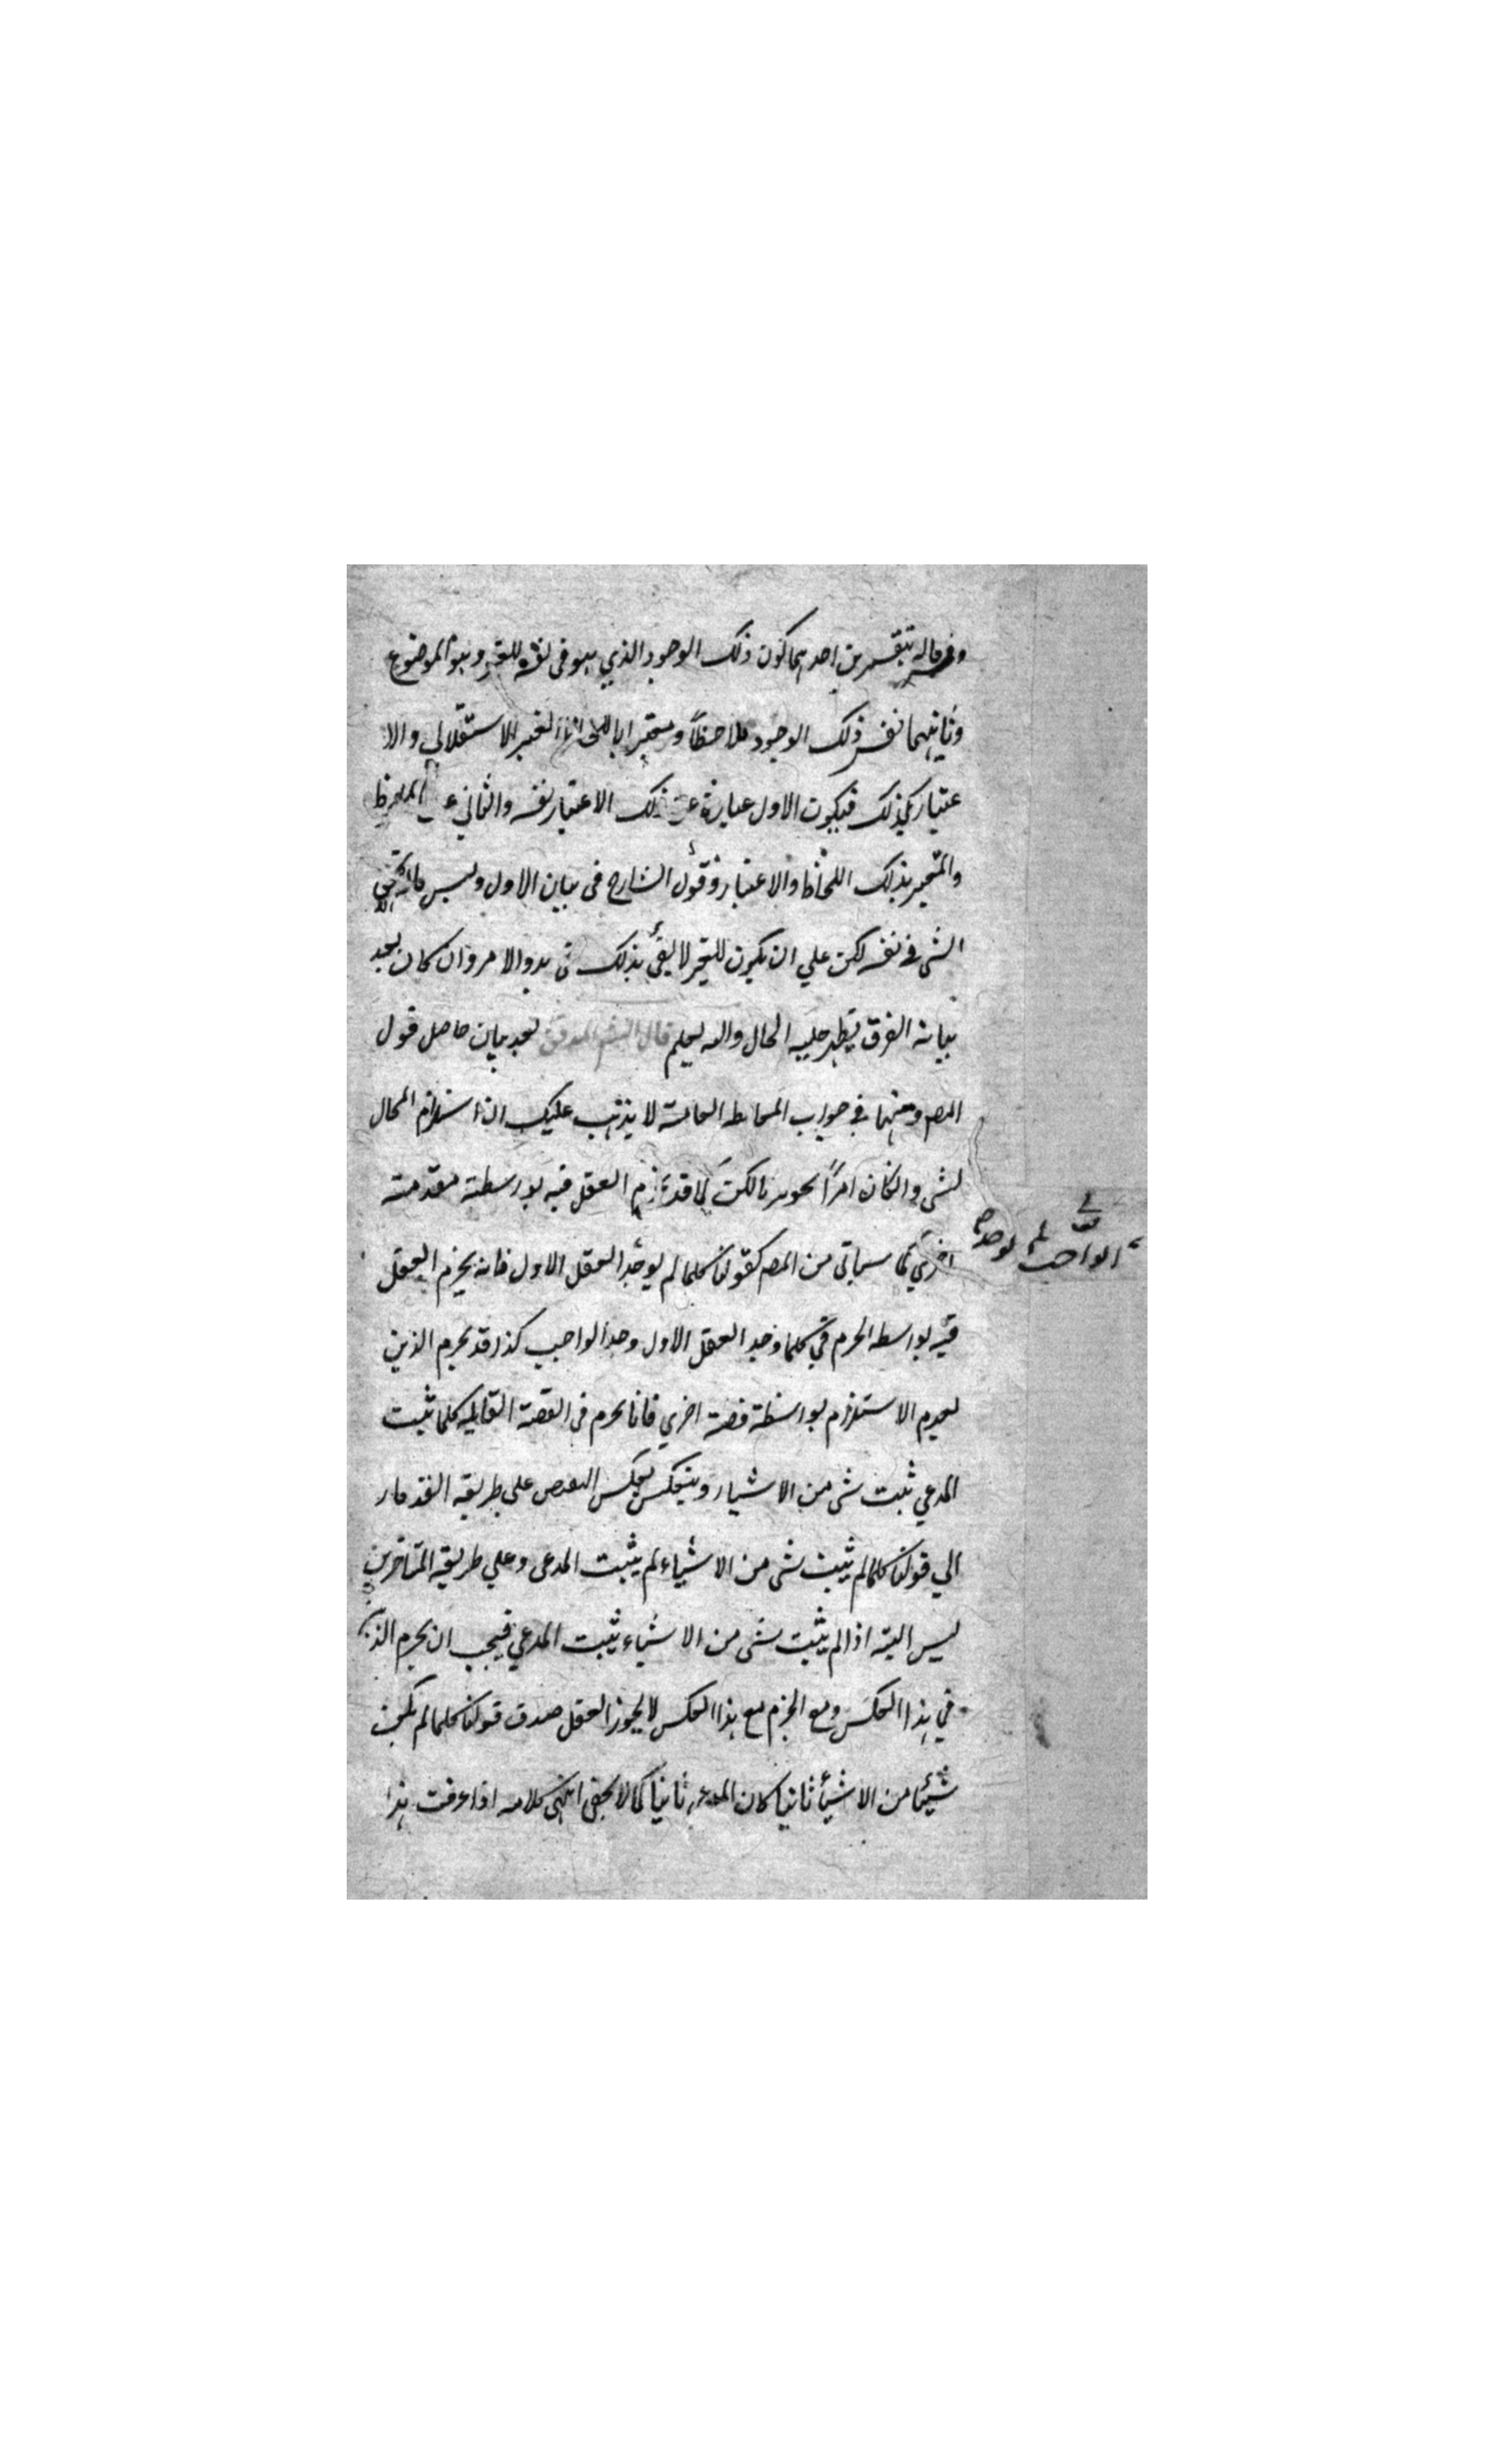 احدهما كون ذلك الوجود الذي هو في نفسه للغير وهو الموضوع
وثانيهما نفس ذلك الوجود ملاحظاً ومعتبرا باللحاظ الغير الاستقلالي والا
عتبار كذلك فيكون الاول عبارة عن ذلك الاعتبار نفسه والثاني عن الملحوظ
والمعتبر بذلك اللحاظ والاعتبار وقول الشارح في بيان الاول وليس
الشى في نفسه لكن علي ان يكون للغير لا يفي بذلك في بدو الامر وان كان بعد
بيانه الفرق يظهر جلية الحال والله يعلم قال الشم المدقق بعد بيان حاصل قول
المصم ومنهما في جواب العامة لا يذهب عليك ان استلزام المحال
لشى وانكان امراً قد يجزم العقل فيه بواسطة مقدمة
اخري كما سياتى من المصم كقولنا كلما لم يوجد العقل الاول فانه يجزم العقل
الواجب لم يوجد
فيه بواسطه الجزم في كلما وجد العقل الاول وجد الواجب كذا قد يجزم الذهن
بعدم الاستلزام بواسطة قضية اخري فانا نجزم في القضية القايلة كلما ثبت
المدعي ثبت شى من الاشياء وينعكس بعكس النقيض علي طريقه القدماء
الي قولنا كلما لم يثبت شى من الاشياء لم يثبت المدعى وعلي طريقة المتاخرين
ليس البتة اذا لم يثبت شى من الاشياء يثبت المدعي فيجب ان يجزم الذهن
في هذا العكس ومع الجزم مع هذا العكس لا يجوز العقل صدق قولنا كلما لم يكن
شيئا من الاشيأ ثابتا كان المدعى ثابتا كما لا يخفى انتهى كلامه اذا عرفت هذا